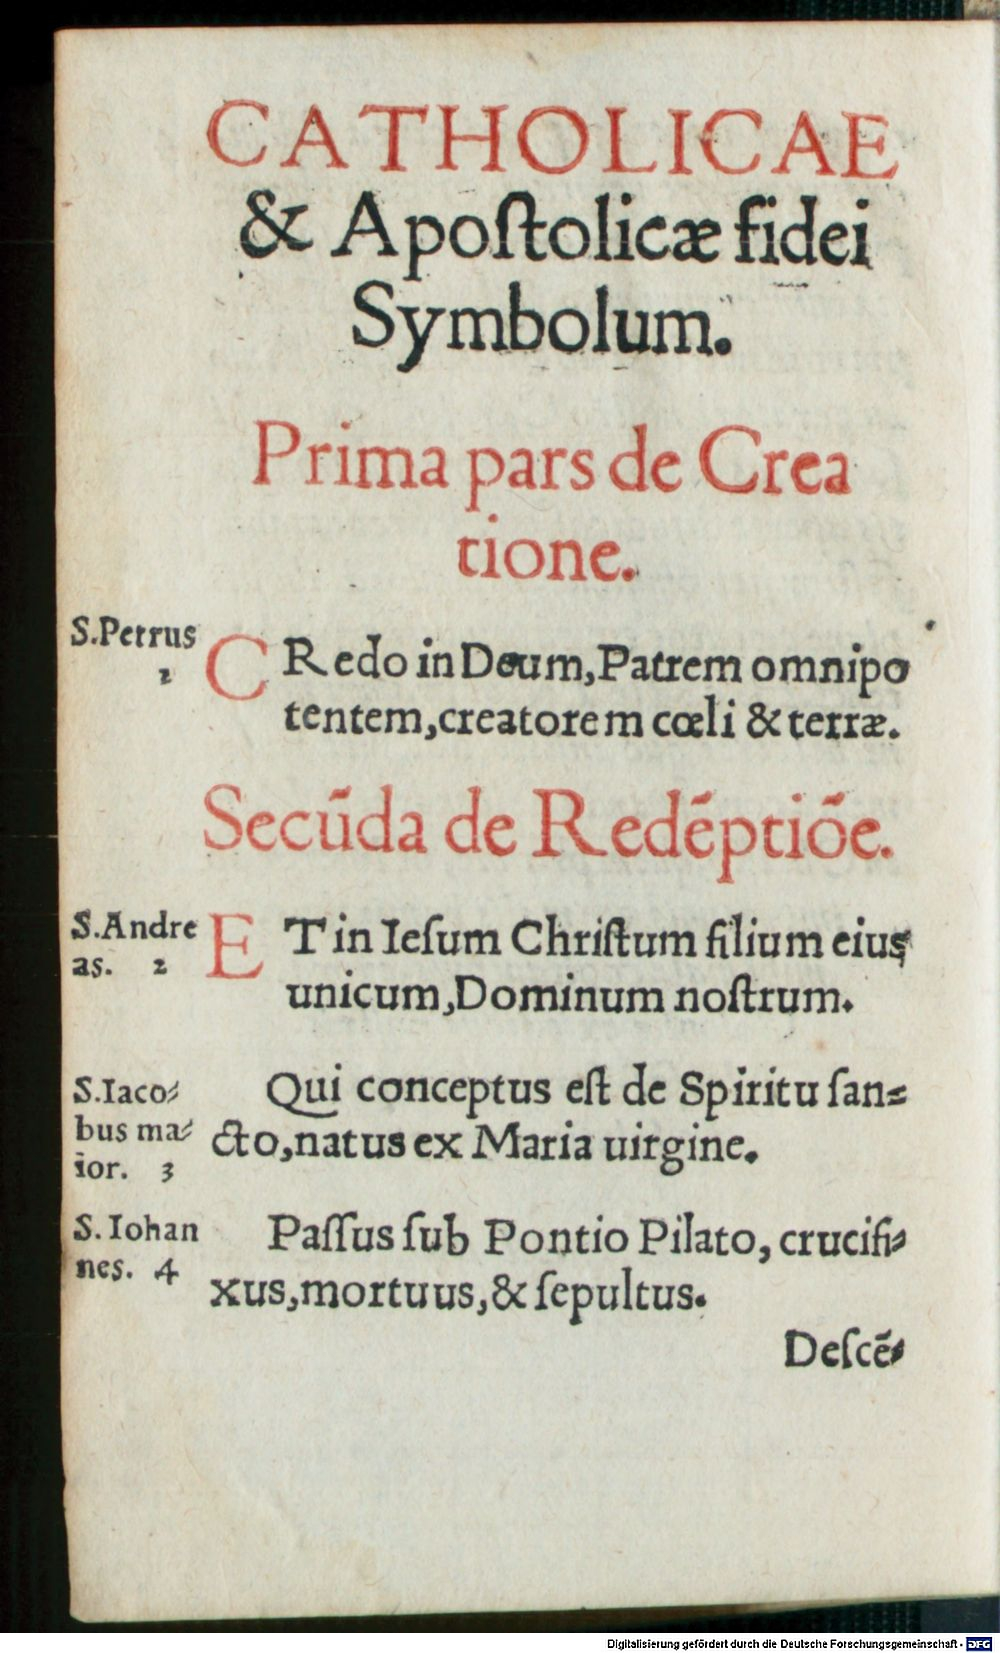 CATHOLICAE
& Apoſtolicæ fidei
Symbolum.
Prima pars de Crea
tione.
S.Petrus
1
CRedo in Deum, Patrem omnipo
tentem, creatorem cœli & terræ.
Secūda de Redēptiōe.
S.Andre
as. 2
ET in Ieſum Chriſtum filium eius
unicum, Dominum noſtrum.
S.Iaco⸗
bus ma⸗
ior. 3
Qui conceptus eſt de Spiritu ſan⸗
cto, natus ex Maria uirgine.
S. Iohan
nes. 4
Paſſus ſub Pontio Pilato, crucifi⸗
xus, mortuus, & ſepultus.
Deſcē⸗
Digitalisierung gefördert durch die Deutsche Forschungsgemeinschaft - DFG